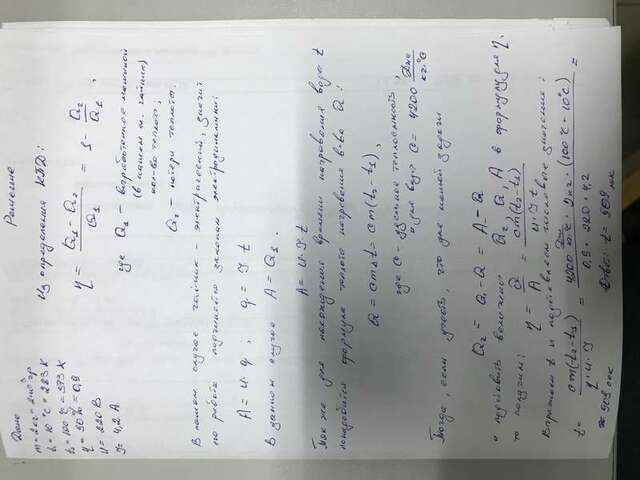 Дано
m = 2 кг
t₁ = 10 °C = 283 K
t₂ = 100 °C = 373 K
η = 90 % = 0,9
U = 220 В
I = 4,2 А
Решение
Из определения КПД:
η = (Q₁ - Q₂) / Q₁ = 1 - Q₂ / Q₁ ,
где Q₁ - выработанное машиной
(в нашем сл. чайник)
кол-во теплоты,
Q₂ - потери теплоты.
В нашем случае чайник - электрический, значит
его работа подчиняется законам электродинамики:
A = U·q ; q = I t
В данном случае A = Q₁ .
A = U·I t
Так же для нахождения времени нагревания воды t
понадобится формула теплоты нагревания в-ва Q:
Q = cmΔt = cm(t₂ - t₁),
где c - удельная теплоемкость,
для воды c = 4200 Дж / кг·°C
Тогда, если учесть, что для нашей задачи
Q₂ = Q₁ - Q = A - Q
и подставить величины Q₂, Q₁, A в формулу для η,
то получим: η = Q / A = cm(t₂ - t₁) / U·I t
Выразим t и подставим числовые значения:
t = cm(t₂ - t₁) / η·U·I = 4200 Дж / кг·°C · 2 кг · (100 °C - 10 °C) / 0,9 · 220 · 4,2 =
≈ 909 сек
Ответ: t = 909 сек